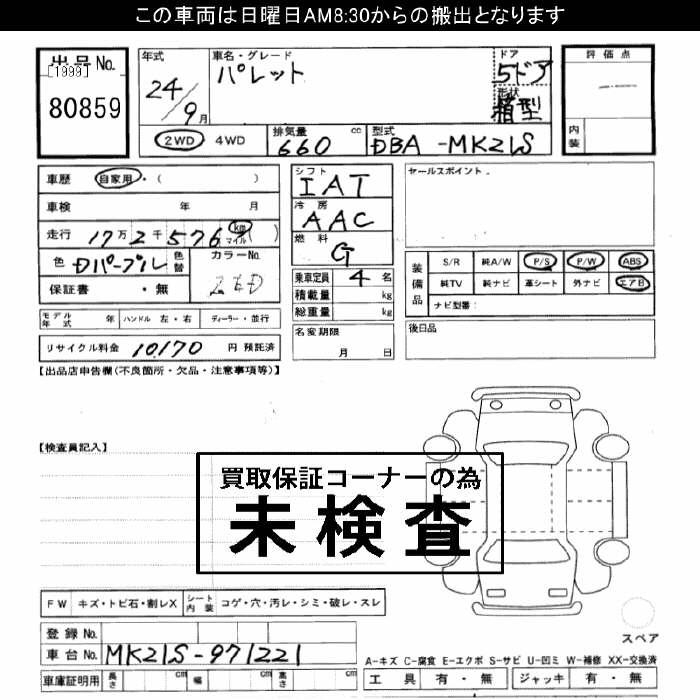 この車両は日曜日AM8:30からの搬出となります
出品No.
[1999]
80859
年式
24/9月
車名・グレード
パレット
ドア
5ドア
形状
箱型
評価点
内装
2WD 4WD
排気量
660 cc
型式
DBA-MK21S
車歴 自家用・( )
車検 年 月
走行 17万2千576 km マイル
色 Dパープル 色替
カラーNo.
保証書 ・無
シフト
IAT
冷房
AAC
燃料
G
乗車定員 4 名
積載量 kg
総重量 kg
名変期限
月 日
セールスポイント
装備品
S/R 純A/W P/S P/W ABS
純TV 純ナビ 革シート 外ナビ エアB
ナビ型番:
後日品
モデル年式 年 ハンドル 左・右 ディーラー・並行
リサイクル料金 10170 円 預託済
【出品店申告欄(不良箇所・欠品・注意事項等)】
【検査員記入】
買取保証コーナーの為
未検査
FW キズ・トビ石・割レX シート内装 コゲ・穴・汚レ・シミ・破レ・スレ
登録No.
車台No. MK21S-971221
車庫証明用 長さ cm 幅 cm 高さ cm
スペア
A-キズ C-腐食 E-エクボ S-サビ U-凹ミ W-補修 XX-交換済
工具 有・無 ジャッキ 有・無